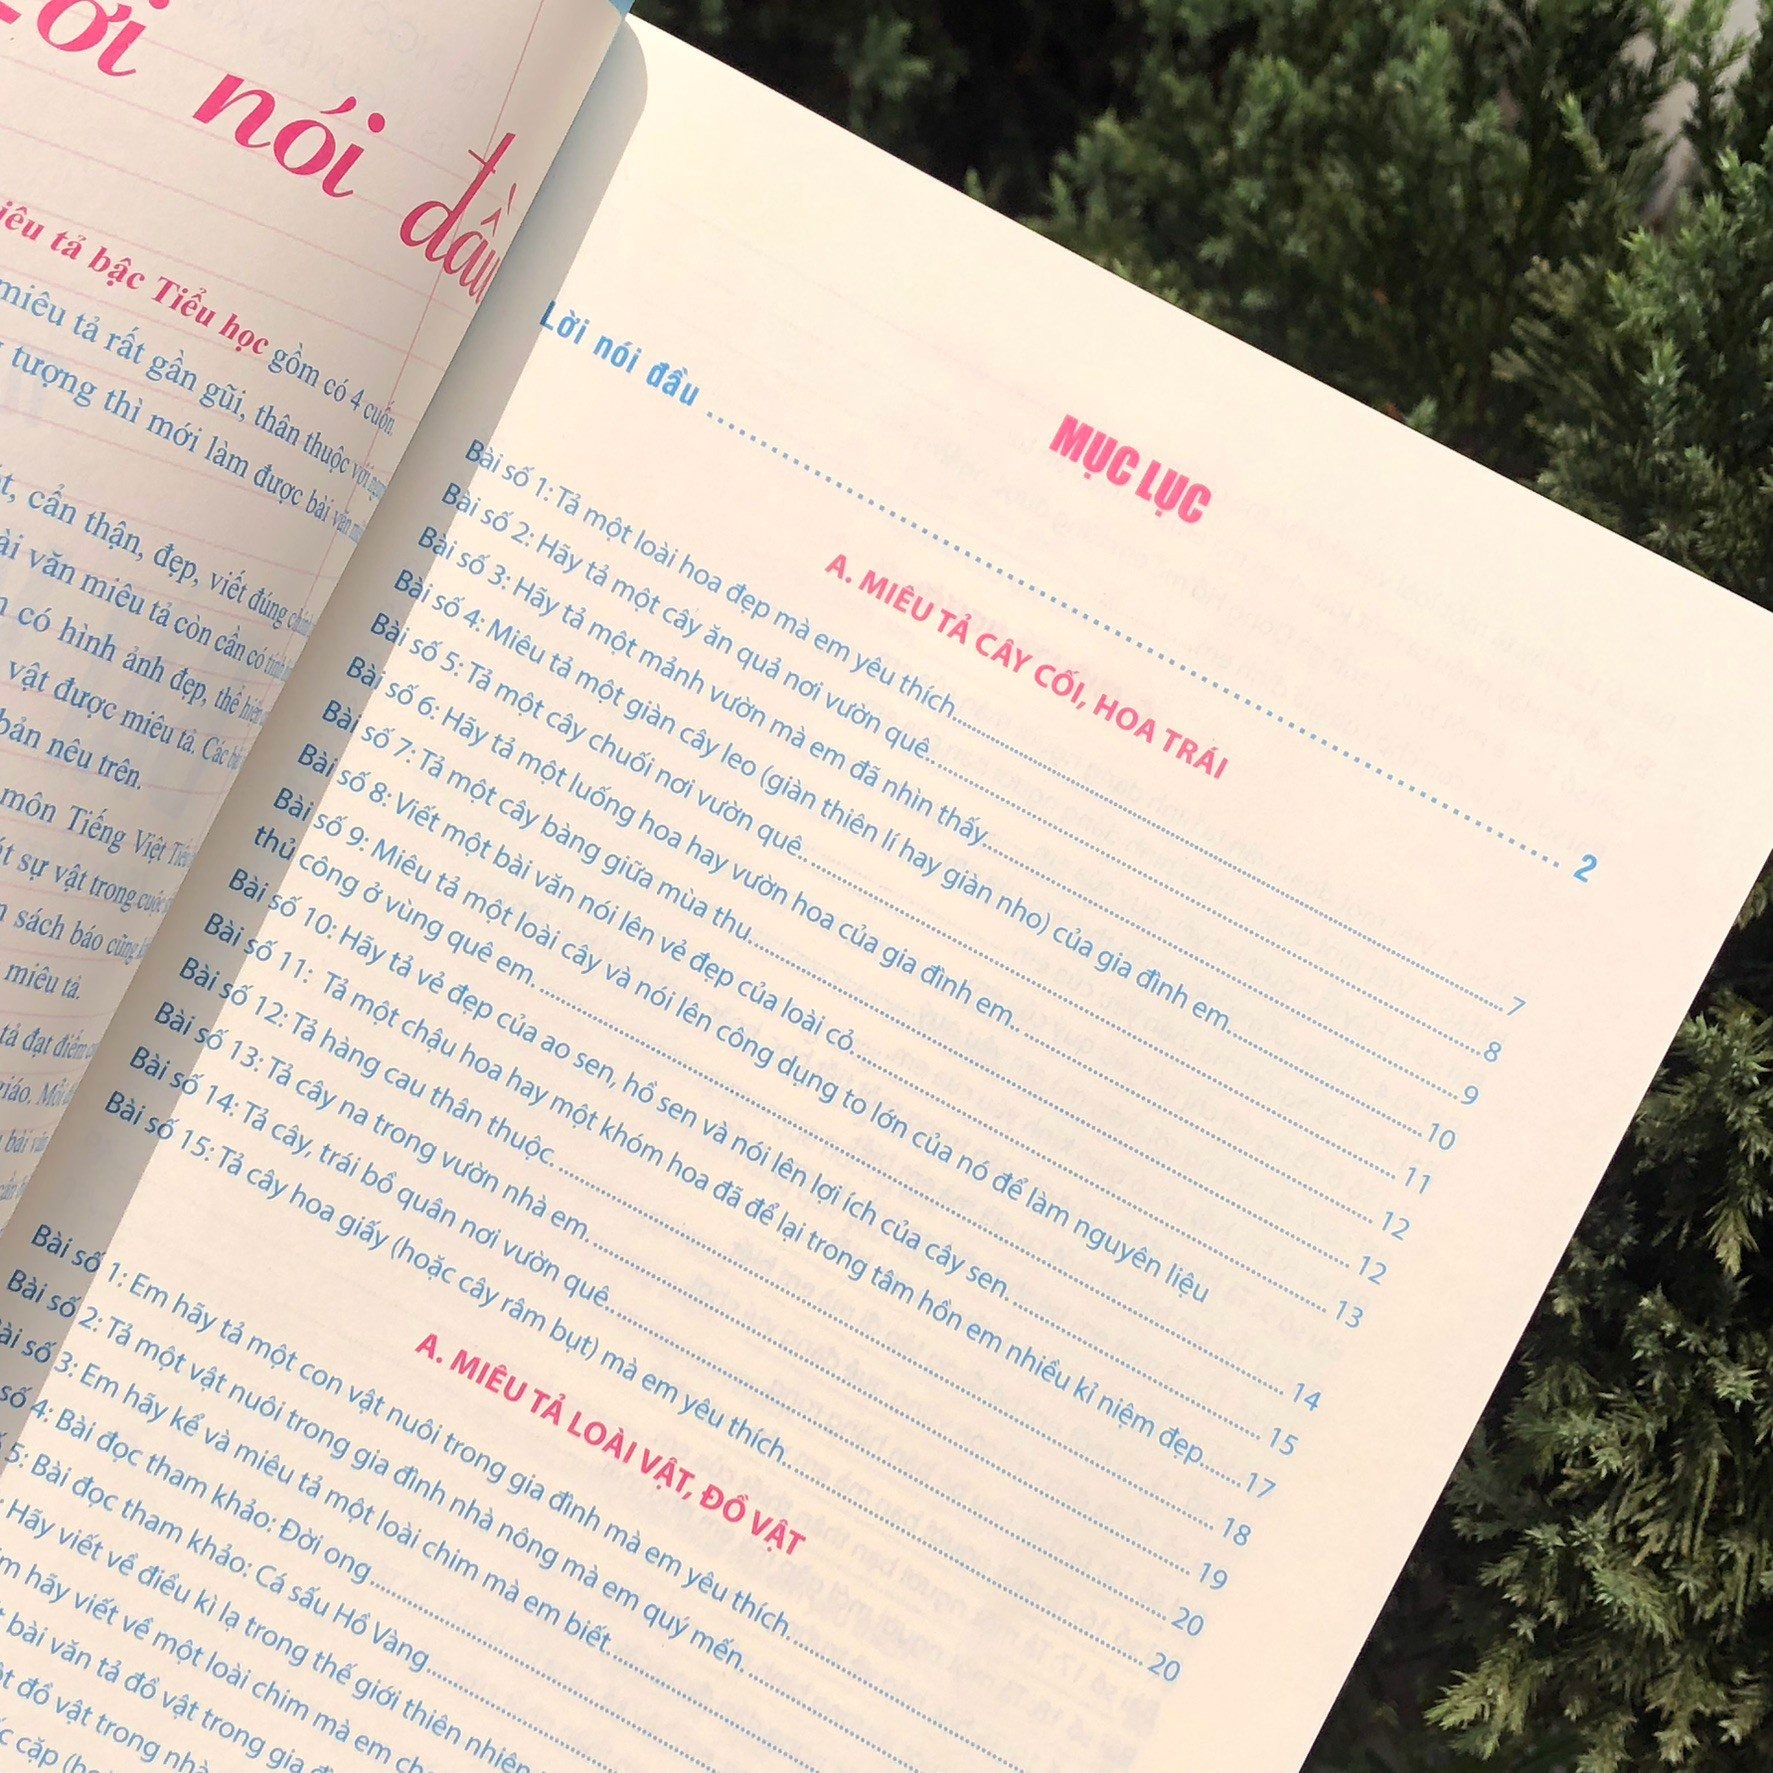 ời nói đầu
iêu tả bậc Tiểu học gồm có 4 cuốn.
miêu tả rất gần gũi, thân thuộc với
tượng thì mới làm được bài văn
cẩn thận, đẹp, viết đúng
ài văn miêu tả còn cần có
có hình ảnh đẹp, thể hiện
vật được miêu tả. Các
bản nêu trên.
môn Tiếng Việt
sự vật trong cuộc
sách báo cũng
miêu tả.
tả đạt điểm
MỤC LỤC
Lời nói đầu 2
A. MIÊU TẢ CÂY CỐI, HOA TRÁI
Bài số 1: Tả một loài hoa đẹp mà em yêu thích 7
Bài số 2: Hãy tả một cây ăn quả nơi vườn quê 8
Bài số 3: Hãy tả một mảnh vườn mà em đã nhìn thấy 9
Bài số 4: Miêu tả một giàn cây leo (giàn thiên lí hay giàn nho) của gia đình em 10
Bài số 5: Tả một cây chuối nơi vườn quê 11
Bài số 6: Hãy tả một luống hoa hay vườn hoa của gia đình em 12
Bài số 7: Tả một cây bàng giữa mùa thu 12
Bài số 8: Viết một bài văn nói lên vẻ đẹp của loài cỏ 13
Bài số 9: Miêu tả một loài cây và nói lên công dụng to lớn của nó để làm nguyên liệu
thủ công ở vùng quê em. 14
Bài số 10: Hãy tả vẻ đẹp của ao sen, hồ sen và nói lên lợi ích của cây sen. 15
Bài số 11: Tả một chậu hoa hay một khóm hoa đã để lại trong tâm hồn em nhiều kỉ niệm đẹp 17
Bài số 12: Tả hàng cau thân thuộc 18
Bài số 13: Tả cây na trong vườn nhà em 19
Bài số 14: Tả cây, trái bồ quân nơi vườn quê 20
Bài số 15: Tả cây hoa giấy (hoặc cây râm bụt) mà em yêu thích 20
A. MIÊU TẢ LOÀI VẬT, ĐỒ VẬT
Bài số 1: Em hãy tả một con vật nuôi trong gia đình mà em yêu thích
Bài số 2: Tả một vật nuôi trong gia đình nhà nông mà em quý mến.
ài số 3: Em hãy kể và miêu tả một loài chim mà em biết
số 4: Bài đọc tham khảo: Đời ong
5: Bài đọc tham khảo: Cá sấu Hồ Vàng
Hãy viết về điều kì lạ trong thế giới thiên nhiên
hãy viết về một loài chim mà em
bài văn tả đồ vật trong gia
đồ vật trong nhà
cặp